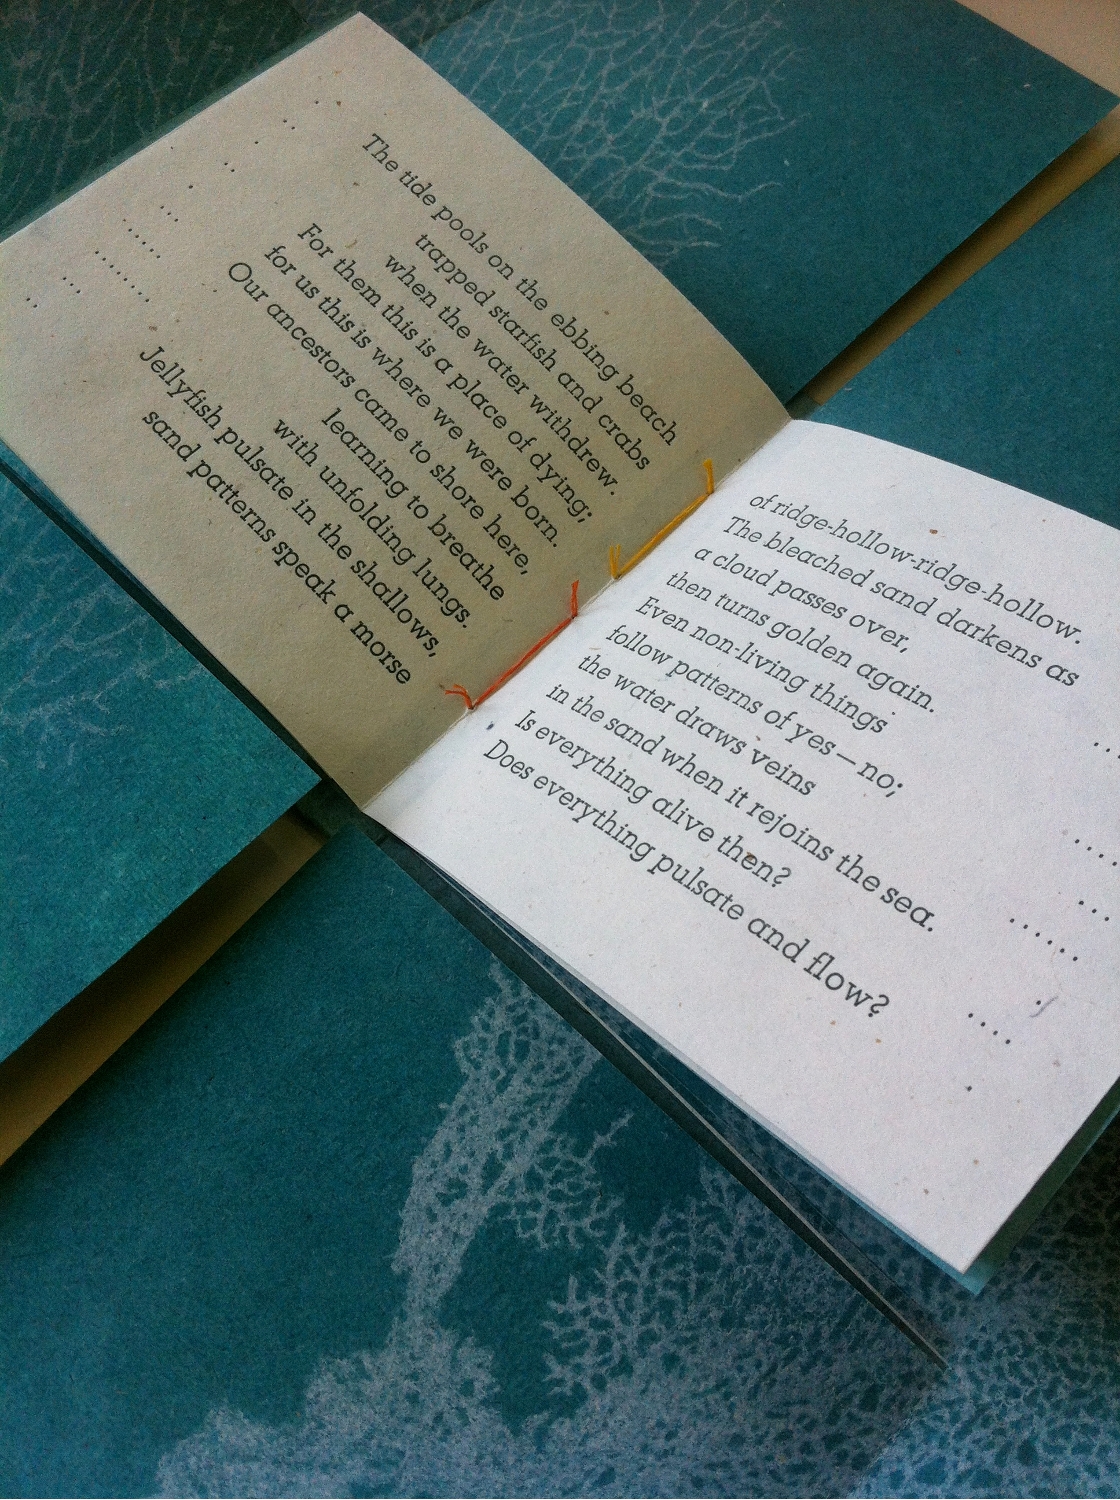 The tide pools on the ebbing beach
trapped starfish and crabs
when the water withdrew.
For them this is a place of dying;
for us this is where we were born.
Our ancestors came to shore here,
learning to breathe
with unfolding lungs.
Jellyfish pulsate in the shallows,
sand patterns speak a morse
of ridge-hollow-ridge-hollow.
The bleached sand darkens as
a cloud passes over,
then turns golden again.
Even non-living things
follow patterns of yes — no;
the water draws veins
in the sand when it rejoins the sea.
Is everything alive then?
Does everything pulsate and flow?